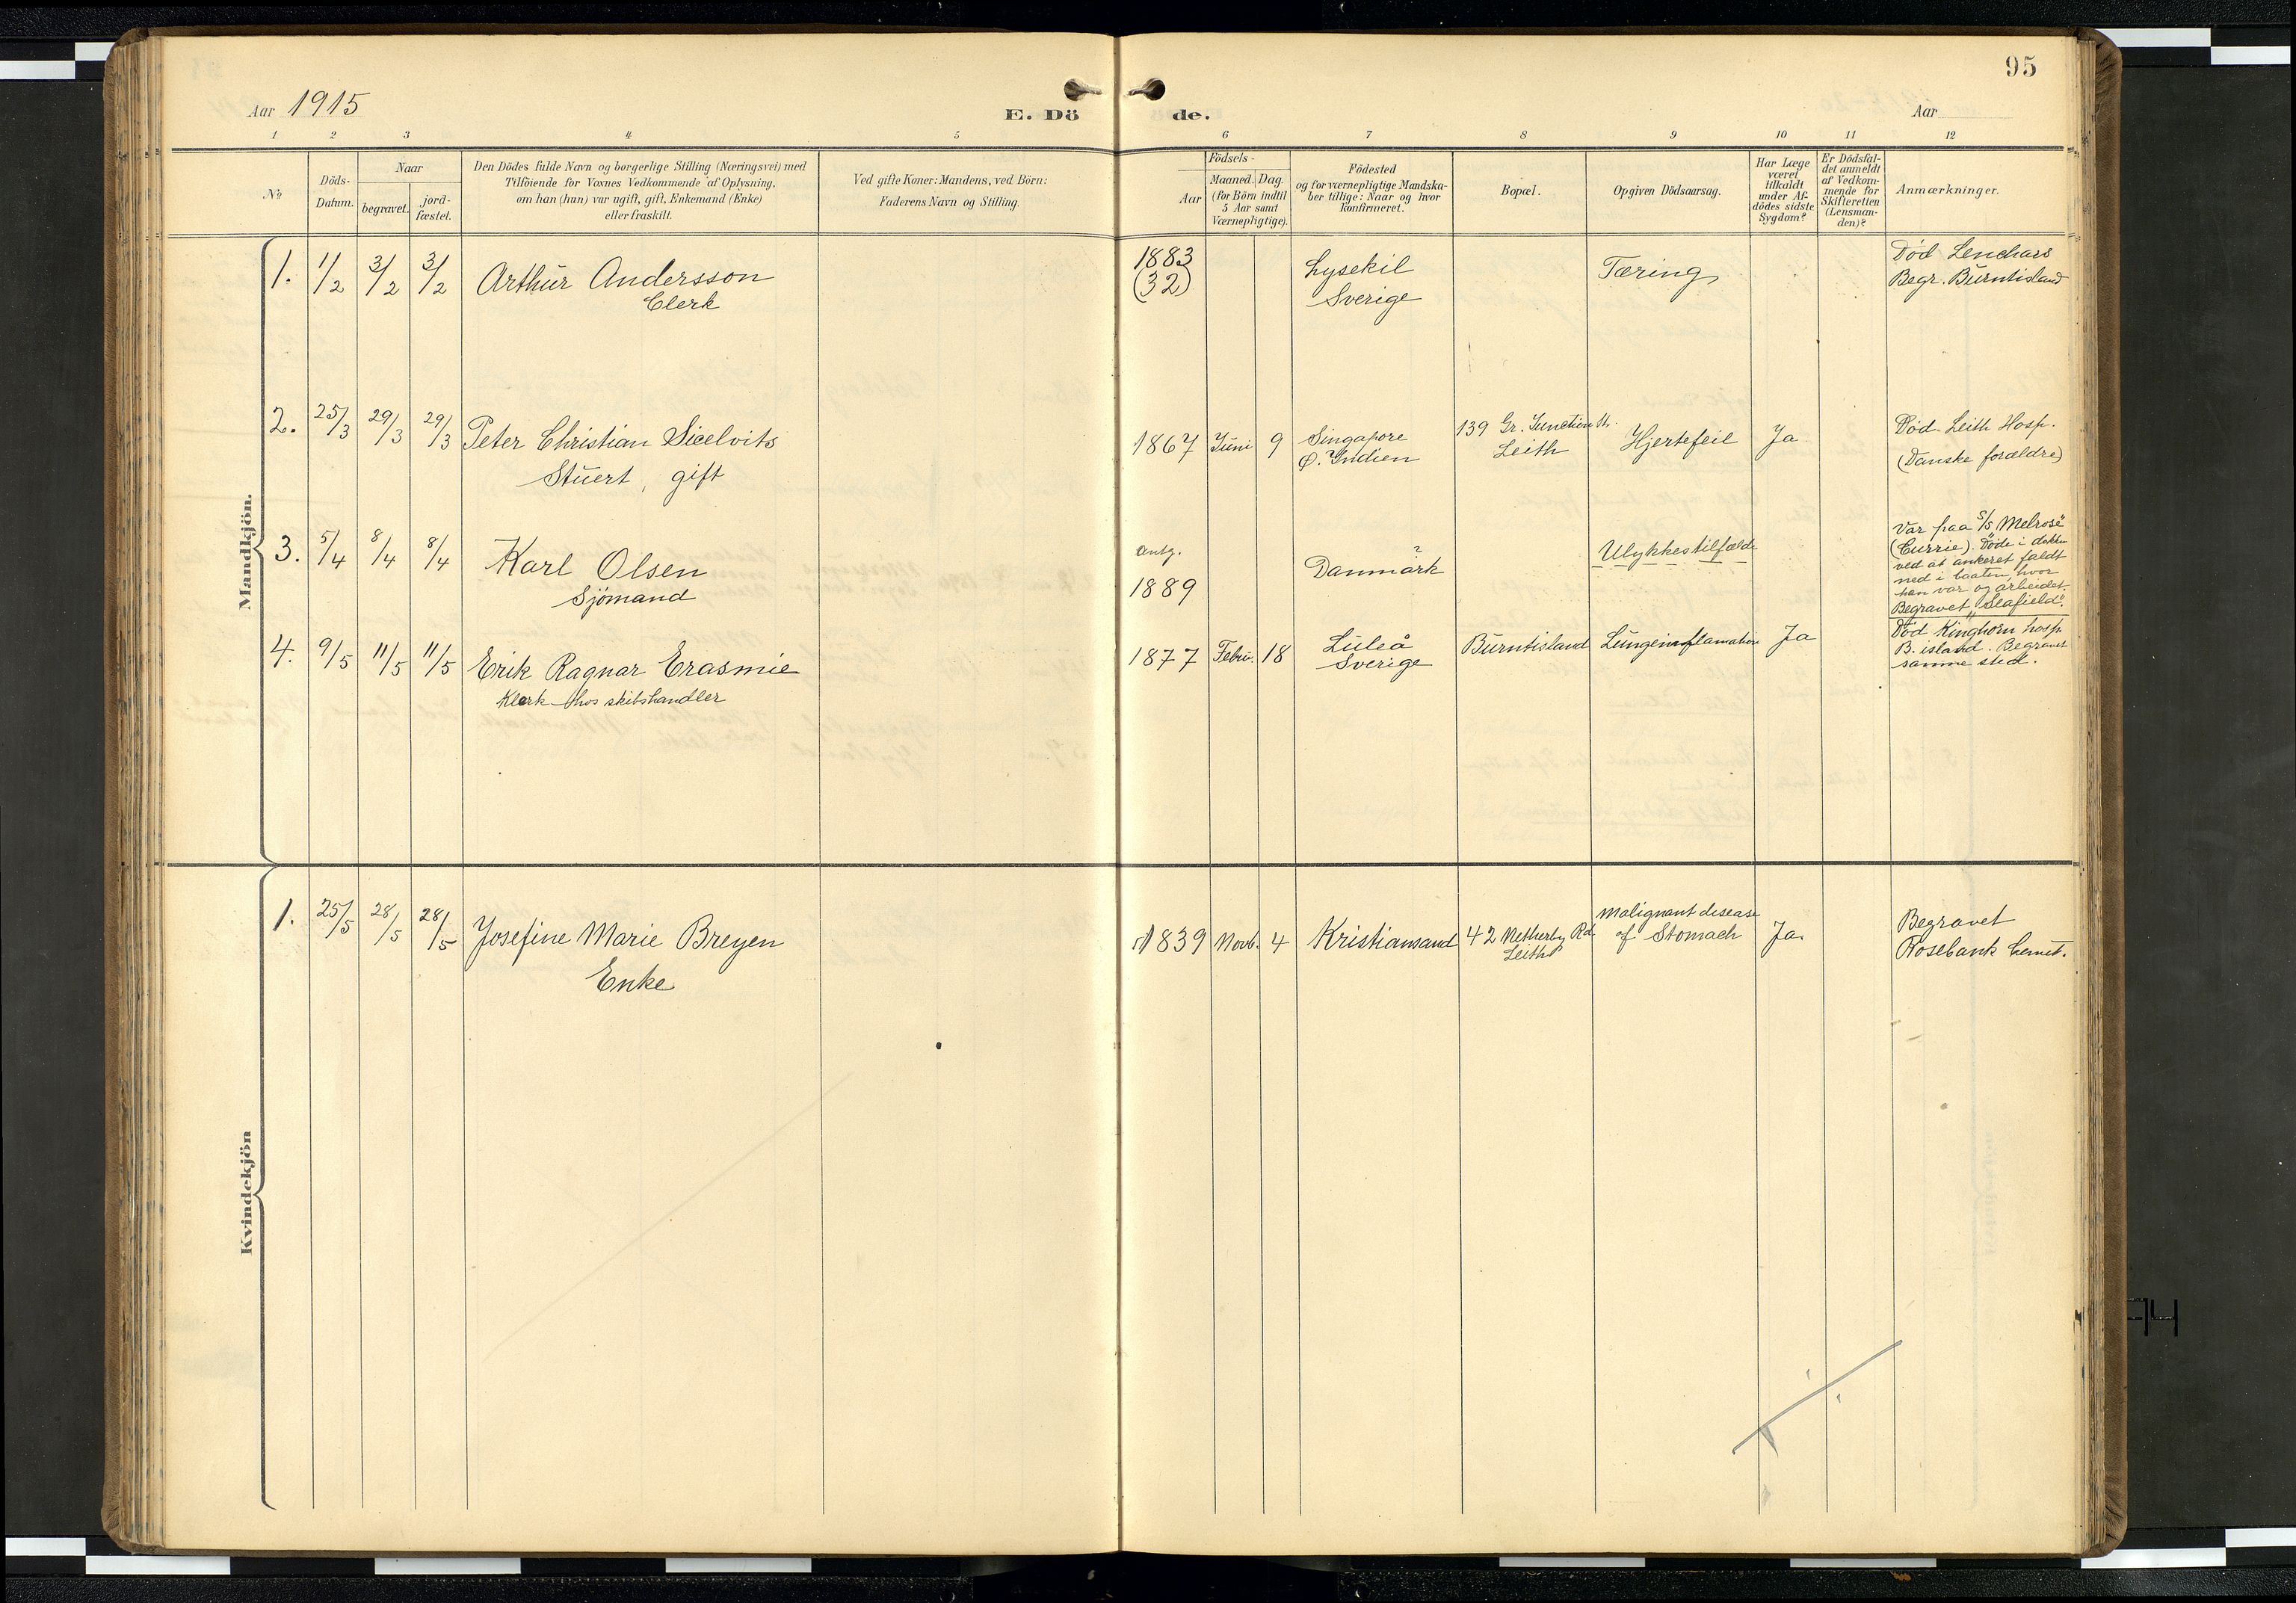 95
Aar 1915
E. Dö
de.
Aar
1 2 3 4 5 6 7 8 9 10 11 12
No
Döds-
Datum.
Naar
begravet.
jord-
fæstet.
Den Dödes fulde Navn og borgerlige Stilling (Næringsvei) med
Tilföiende for Voxnes Vedkommende af Oplysning,
om han (hun) var ugift, gift, Enkemand (Enke)
eller fraskilt.
Ved gifte Koner: Mandens, ved Börn:
Faderens Navn og Stilling.
Födsels-
Aar
Maaned. Dag.
(for Börn indtil
5 Aar samt
Værnepligtige).
Födested
og for værnepligtige Mandska-
ber tillige: Naar og hvor
konfirmeret.
Bopæl.
Opgiven Dödsaarsag.
Har Læge
været
tilkaldt
under Af-
dödes sidste
Sygdom?
Er Dödsfal-
det anmeldt
af Vedkom-
mende for
Skifteretten
(Lensman-
den)?
Anmærkninger.
Mandkjön.
1. 1/2 3/2 3/2 Arthur Andersson
Clerk
1883
(32)
Lysekil
Sverige
Tæring
Död Lenchars
Begr. Burntisland
2. 25/3 29/3 29/3 Peter Christian Sicelvits
Stuert, gift
1867 Juni 9
Singapore
O. Indien
139 Gr. Junction Str.
Leith
Hjertefeil
Ja
Död Leith Hosp.
(Danske forældre)
3. 5/4 8/4 8/4 Karl Olsen
Sjömand
antg.
1889
?
Danmark
Ulykkestilfælde
Var paa S/S "Melrose"
(Currie). Döde i dokken
ved at ankeret faldt
ned i baaten, hvor
han var og arbeidet.
Begravet "Seafield".
4. 9/5 11/5 11/5 Erik Ragnar Erasmie
Klerk hos skibshandler
1877 Febru. 18
Luleå
Sverige
Burntisland
Lungeinflamation
Ja
Död Kinghorn hosp.
B. island. Begravet
samme sted.
Kvindekjön
1. 25/5 28/5 28/5 Josefine Marie Breyen
Enke
1839 Novb. 4
Kristiansand
42 Netherby Rd.
Leith
Malignant disease
of Stomach
Ja
Begravet
Rosebank Cemet.